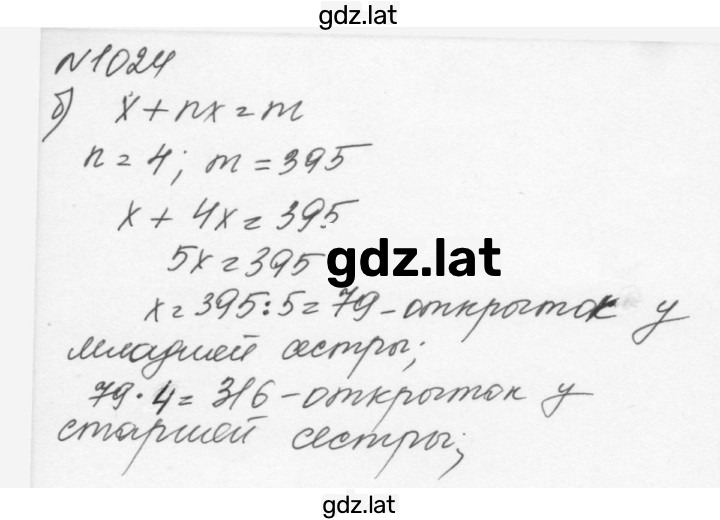 gdz.lat
N1024
б) x + nx = m
n = 4; m = 395
x + 4x = 395
5x = 395
gdz.lat
x = 395:5 = 79 - открыток у
младшей сестры;
79·4 = 316 - открыток у
старшей сестры;
gdz.lat